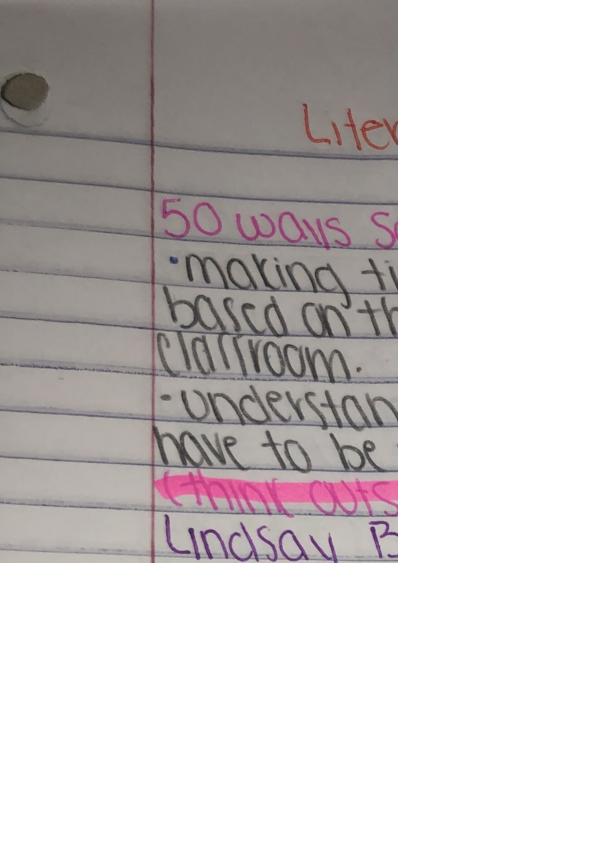 Liter
50 ways S
·making ti
based on th
classroom.
·understan
have to be
(think outs
Lindsay B